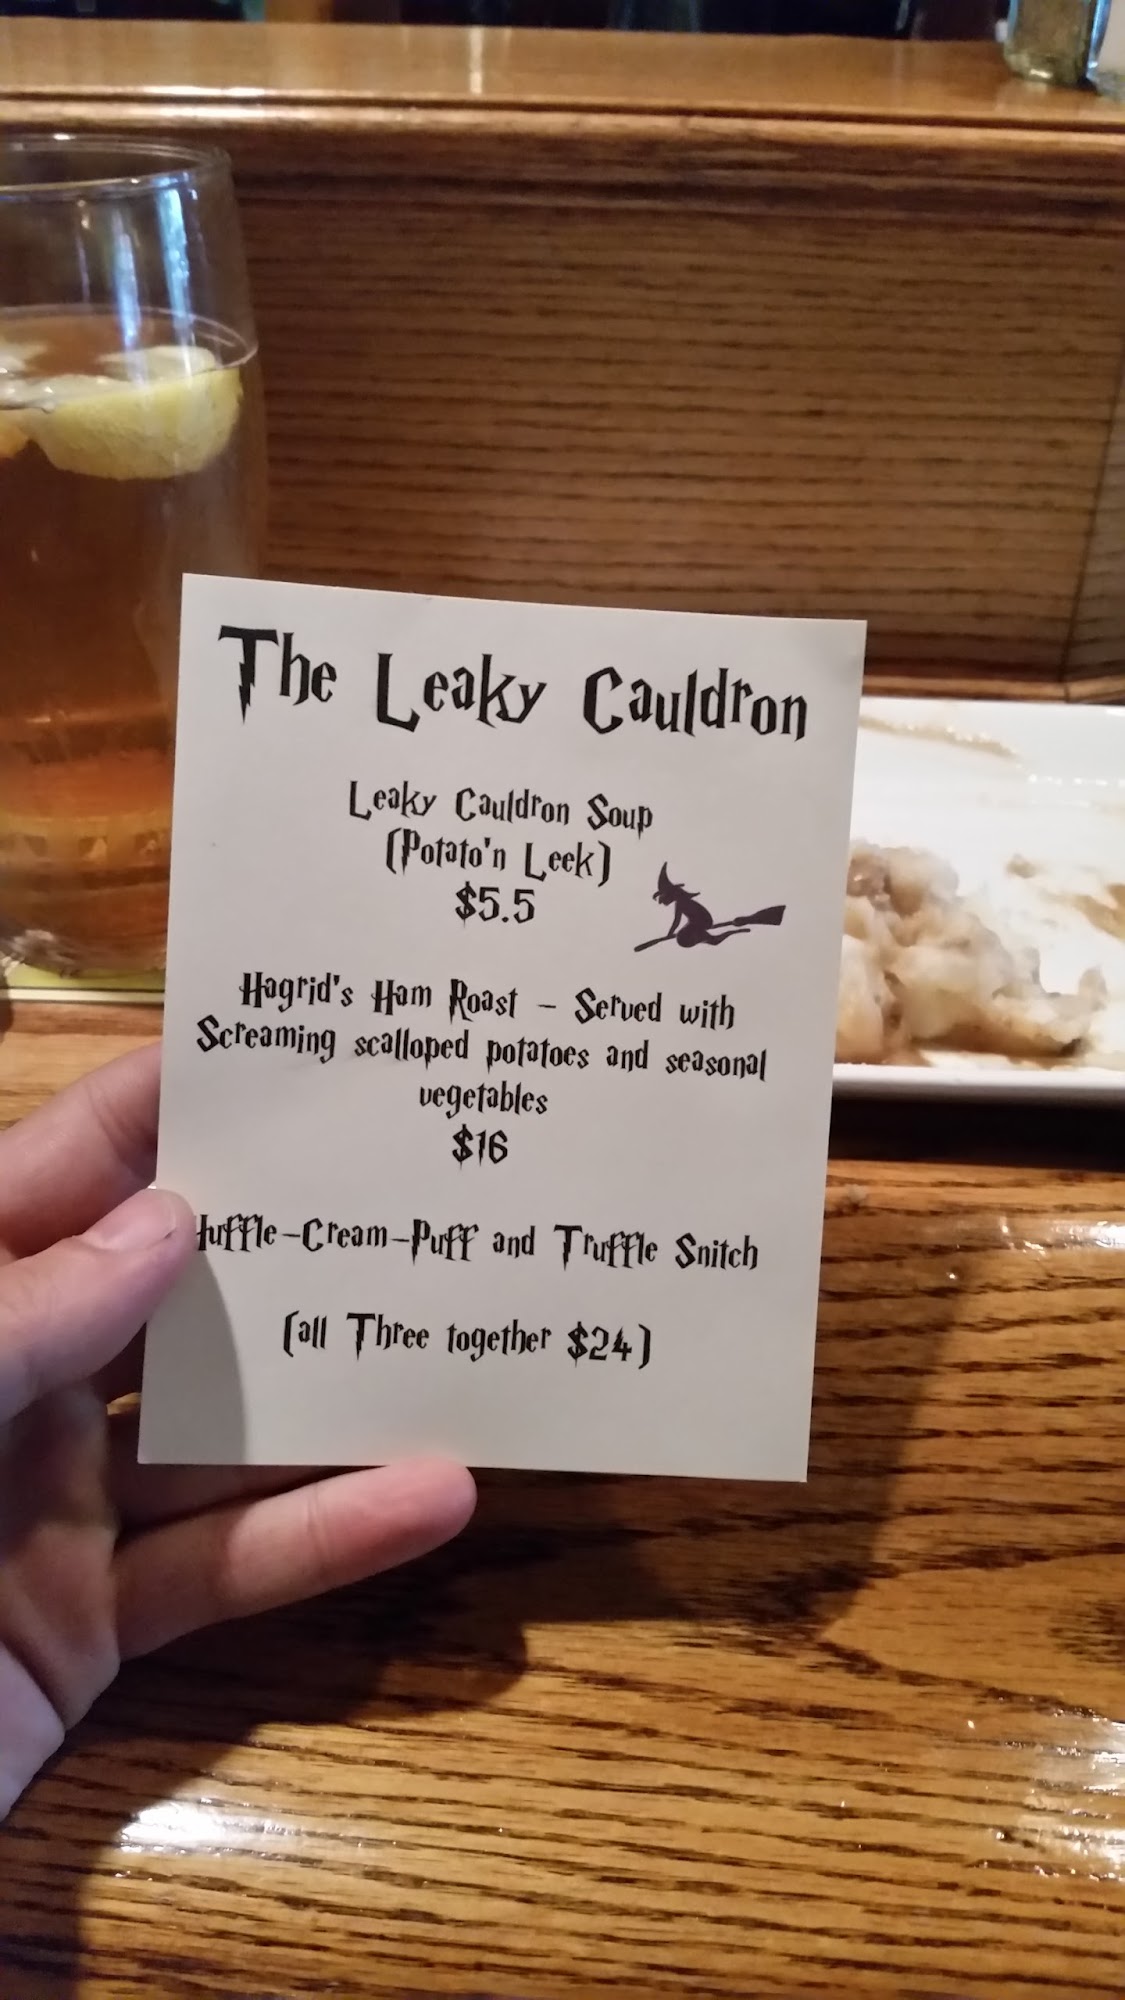 The Leaky Cauldron
Leaky Cauldron Soup
(Potato'n Leek)
$5.5
Hagrid's Ham Roast – Served with
Screaming scalloped potatoes and seasonal
vegetables
$16
Huffle-Cream-Puff and Truffle Snitch
(all Three together $24)